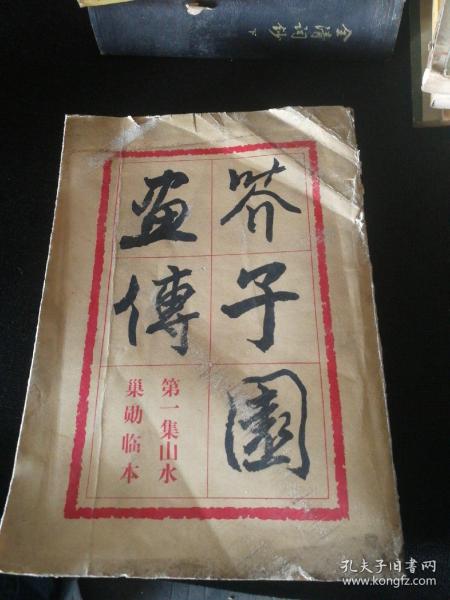 全清词钞 下
芥子園
畫傳
第一集山水
巢勋临本
孔夫子旧书网
www.kongfz.com